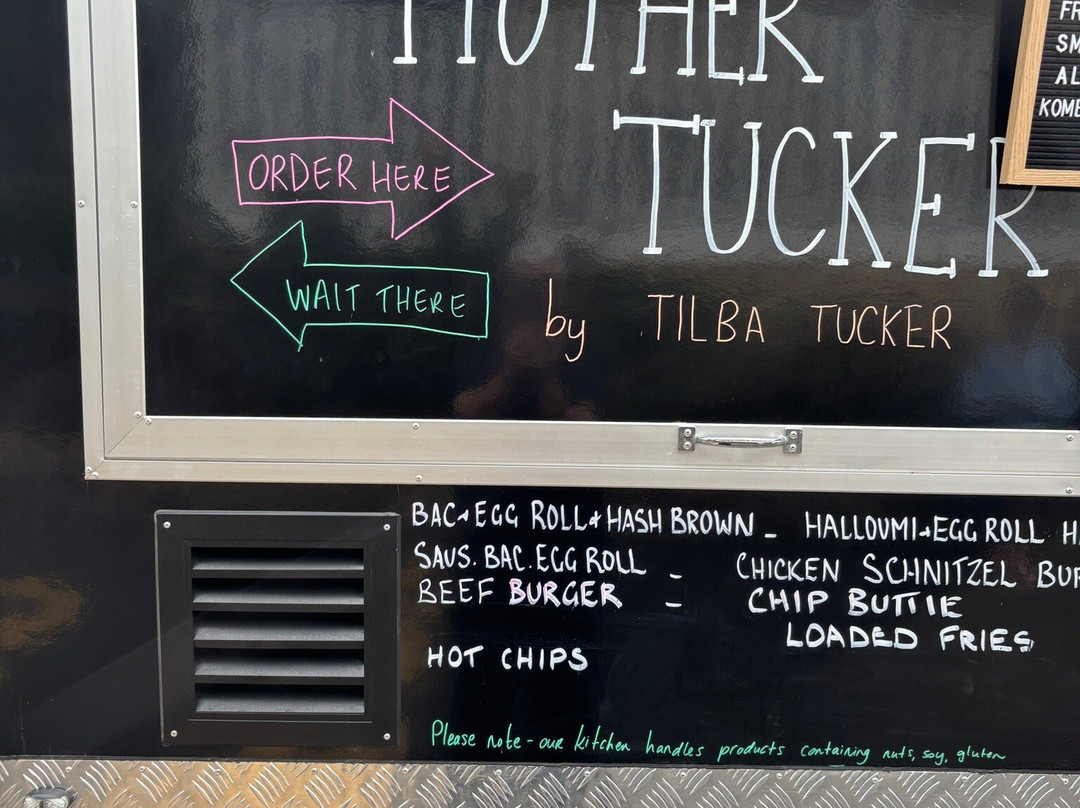 MOTHER
TUCKER
ORDER HERE
WAIT THERE
by TILBA TUCKER
FR
SM
AL
KOMB
BAC+EGG ROLL+HASH BROWN - HALLOUMI+EGG ROLL HA
SAUS. BAC. EGG ROLL - CHICKEN SCHNITZEL BUR
BEEF BURGER - CHIP BUTTIE
LOADED FRIES
HOT CHIPS
Please note - our kitchen handles products containing nuts, soy, gluten